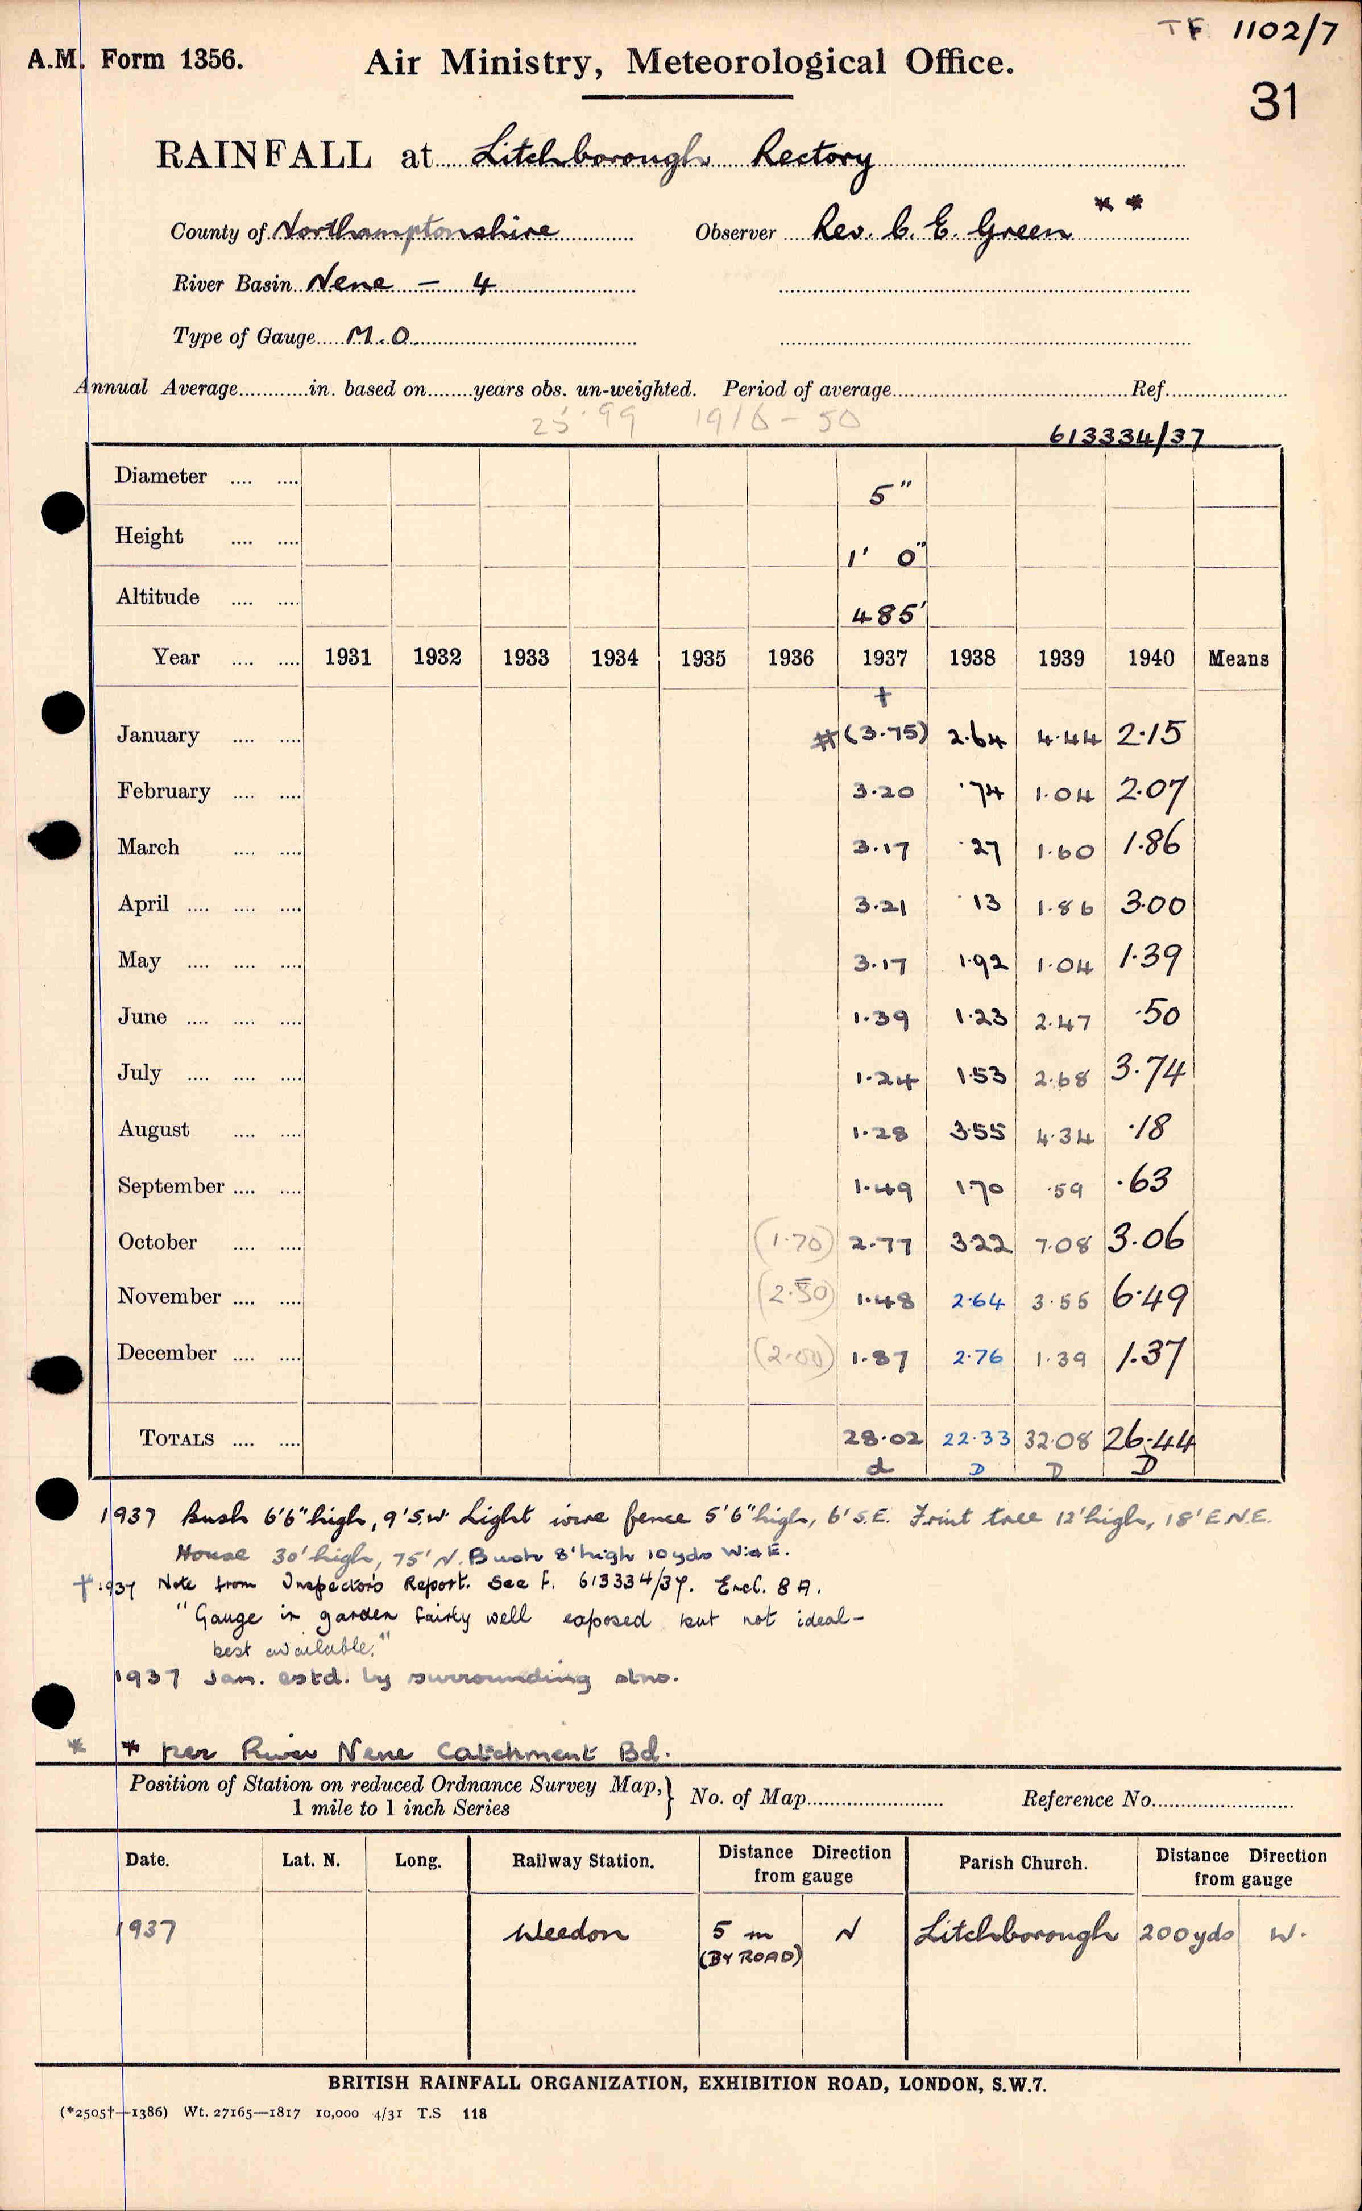 TF 1102/7
A.M. Form 1356. Air Ministry, Meteorological Office.
31
RAINFALL at Litchborough Rectory
County of Northamptonshire Observer Rev. C. E. Green * *
River Basin Nene – 4
Type of Gauge M.O.
Annual Average............in. based on........years obs. un-weighted. Period of average........................Ref.....................
25.99 1916-50
613334/37
Diameter .... .... 5"
Height .... .... 1' 0"
Altitude .... .... 485'
Year .... .... 1931 1932 1933 1934 1935 1936 1937 1938 1939 1940 Means
†
January .... .... # (3.75) 2.64 4.44 2.15
February .... .... 3.20 .74 1.04 2.07
March .... .... 3.17 .27 1.60 1.86
April .... .... .... 3.21 .13 1.86 3.00
May .... .... .... 3.17 1.92 1.04 1.39
June .... .... .... 1.39 1.23 2.47 .50
July .... .... .... 1.24 1.53 2.68 3.74
August .... .... 1.28 3.55 4.34 .18
September .... .... 1.49 1.70 .59 .63
October .... .... (1.70) 2.77 3.22 7.08 3.06
November .... .... (2.50) 1.48 2.64 3.55 6.49
December .... .... (2.00) 1.87 2.76 1.39 1.37
TOTALS .... .... 28.02 22.33 32.08 26.44
d D D D
1937 Bush 6'6" high, 9' S.W. Light wire fence 5'6" high, 6' S.E. Fruit tree 12' high, 18' E.N.E.
House 30' high, 75' N. Bush 8' high 10 yds W & E.
† 1937 Note from Inspector's Report. See F. 613334/37. Encl. 8A.
"Gauge in garden fairly well exposed but not ideal –
best available."
1937 Jan. estd. by surrounding stns.
* * per River Nene Catchment Bd.
Position of Station on reduced Ordnance Survey Map, } No. of Map........................ Reference No.........................
1 mile to 1 inch Series
Date. Lat. N. Long. Railway Station. Distance Direction from gauge Parish Church. Distance Direction from gauge
1937 Weedon 5 m N Litchborough 200 yds W.
(BY ROAD)
BRITISH RAINFALL ORGANIZATION, EXHIBITION ROAD, LONDON, S.W.7.
(*2505†—1386) Wt. 27165—1817 10,000 4/31 T.S 118